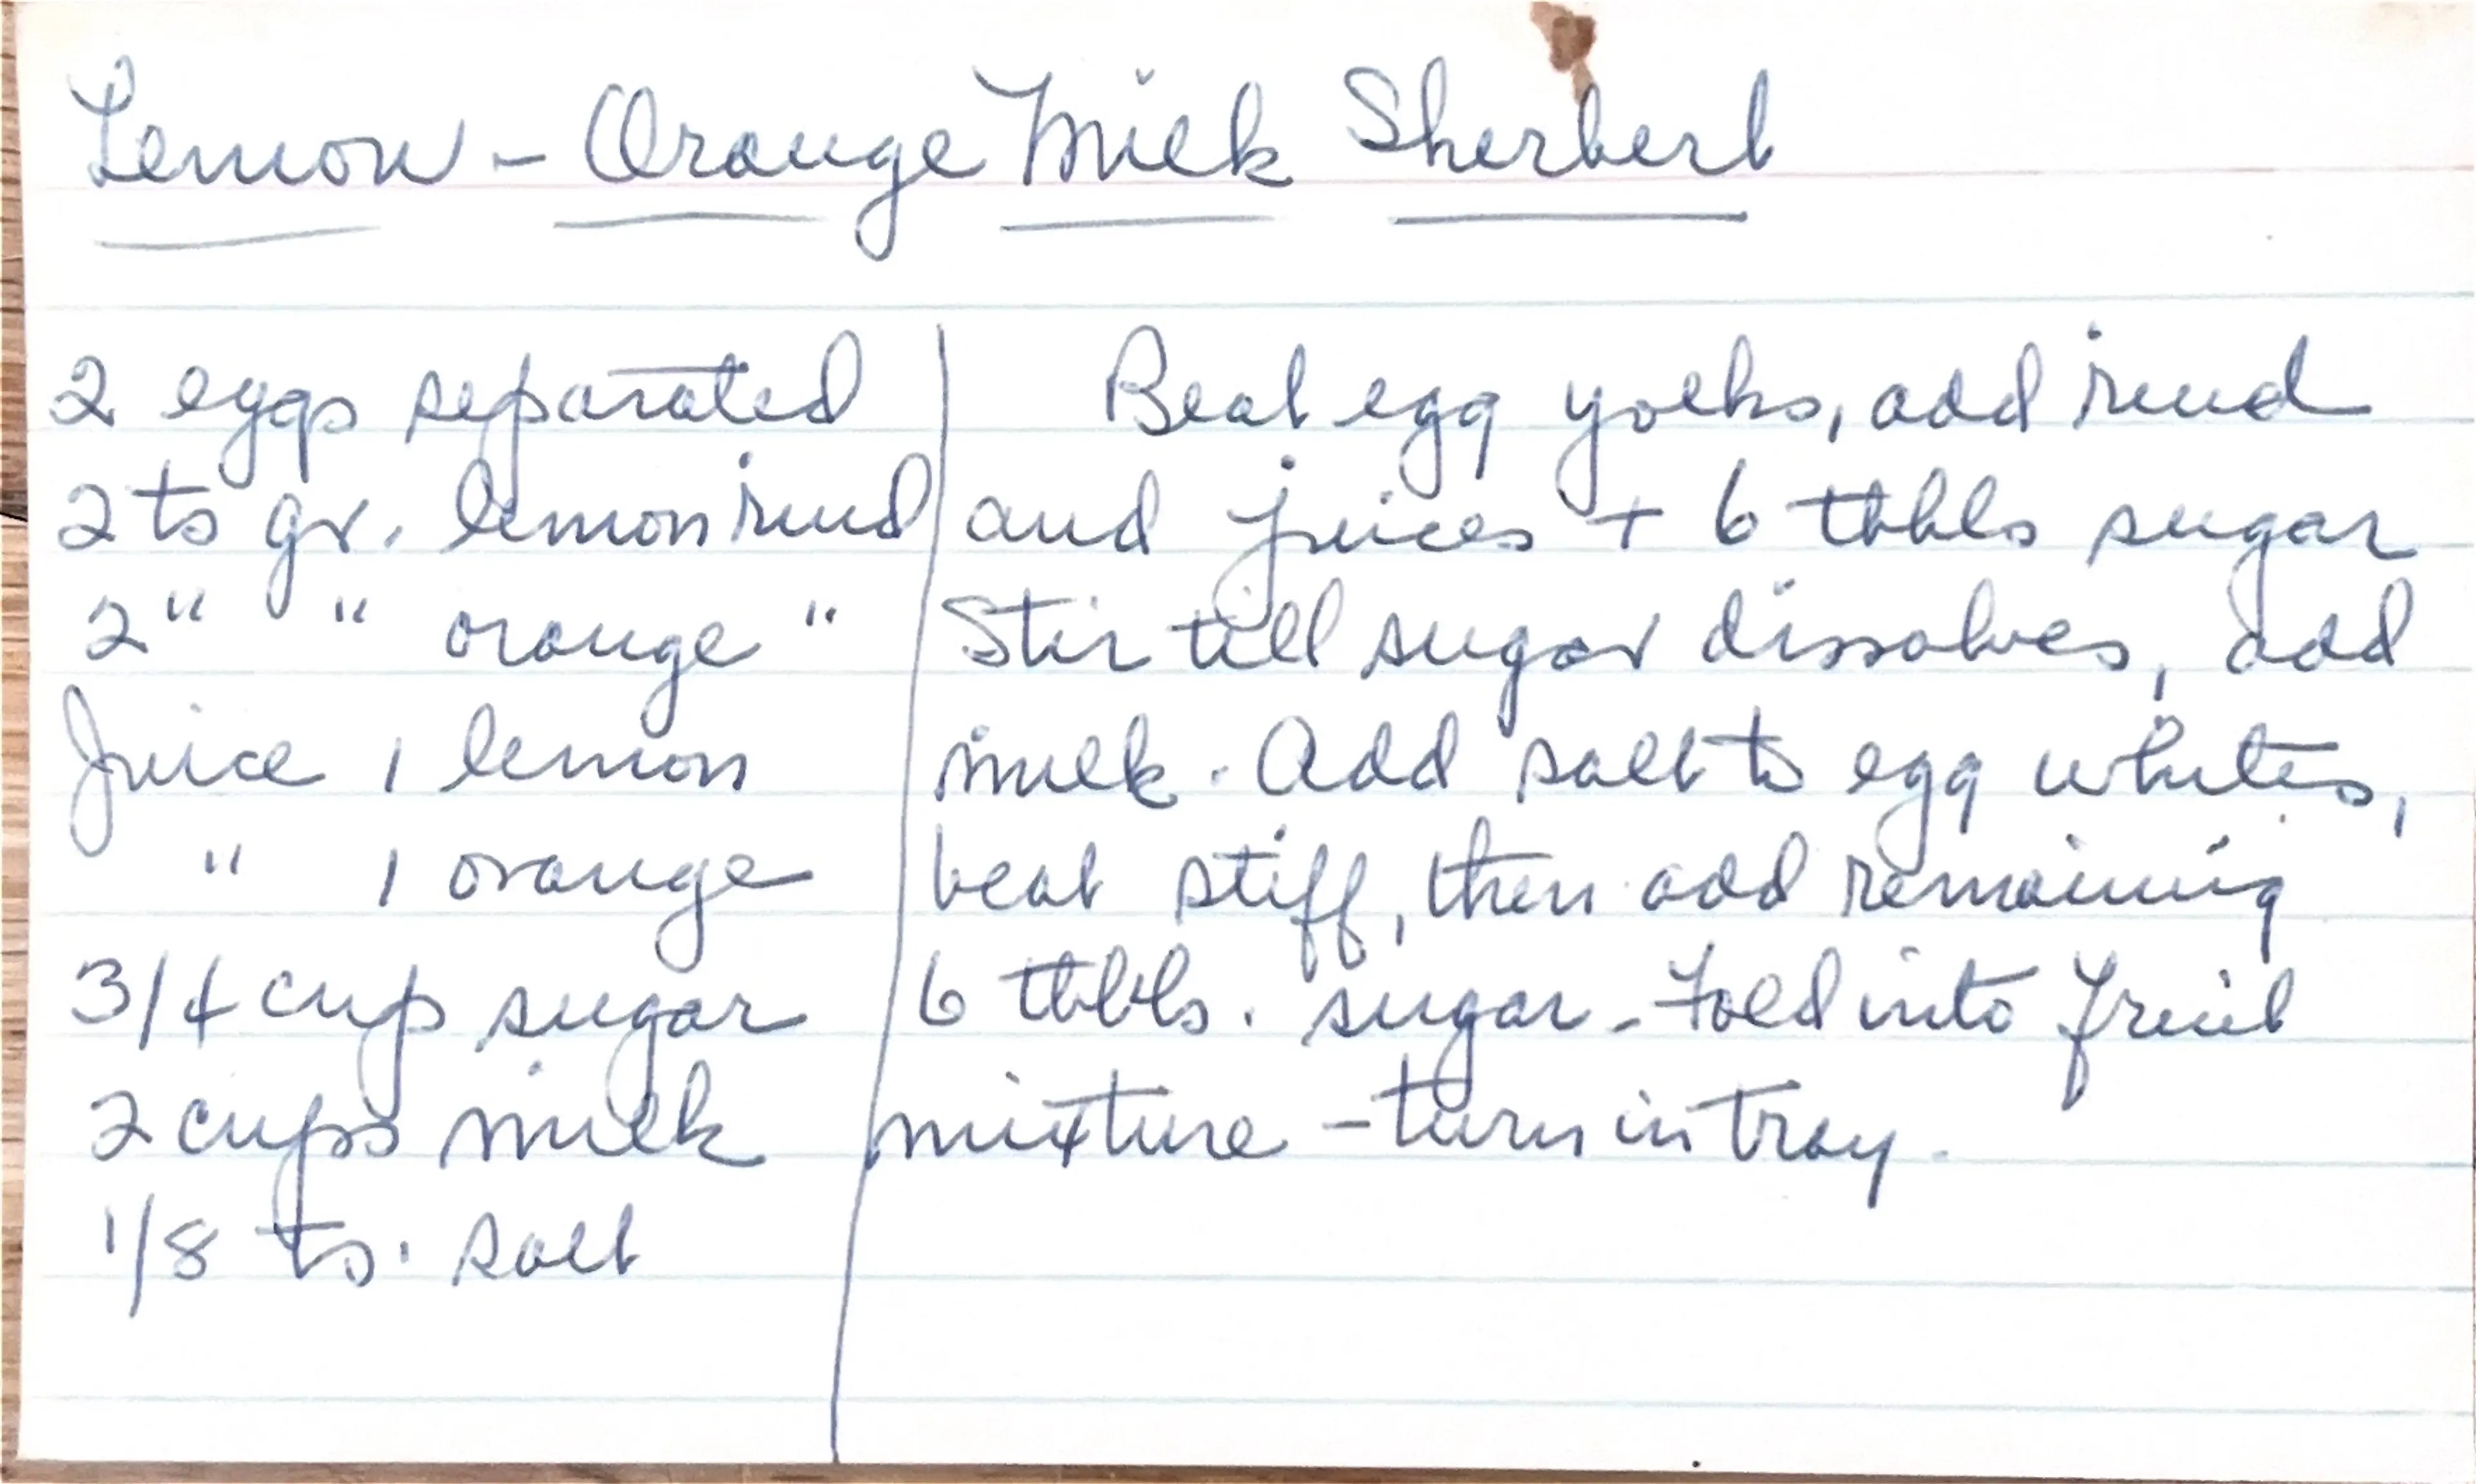 Lemon - Orange Milk Sherbert
2 eggs separated
2 ts gr. lemon rind
2 " " orange "
Juice 1 lemon
" 1 orange
3/4 cup sugar
2 cups milk
1/8 ts. salt
Beat egg yolks, add rind
and juices + 6 tbbls sugar
Stir till sugar dissolves, add
milk. Add salt to egg whites,
beat stiff, then add remaining
6 tbbls. sugar - Fold into fruit
mixture - turn in tray.